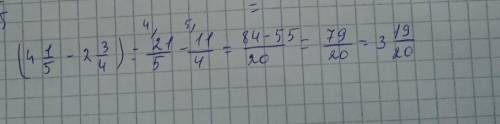 (4 1/5 - 2 3/4) = 21/5 - 11/4 = 84-55/20 = 79/20 = 3 19/20